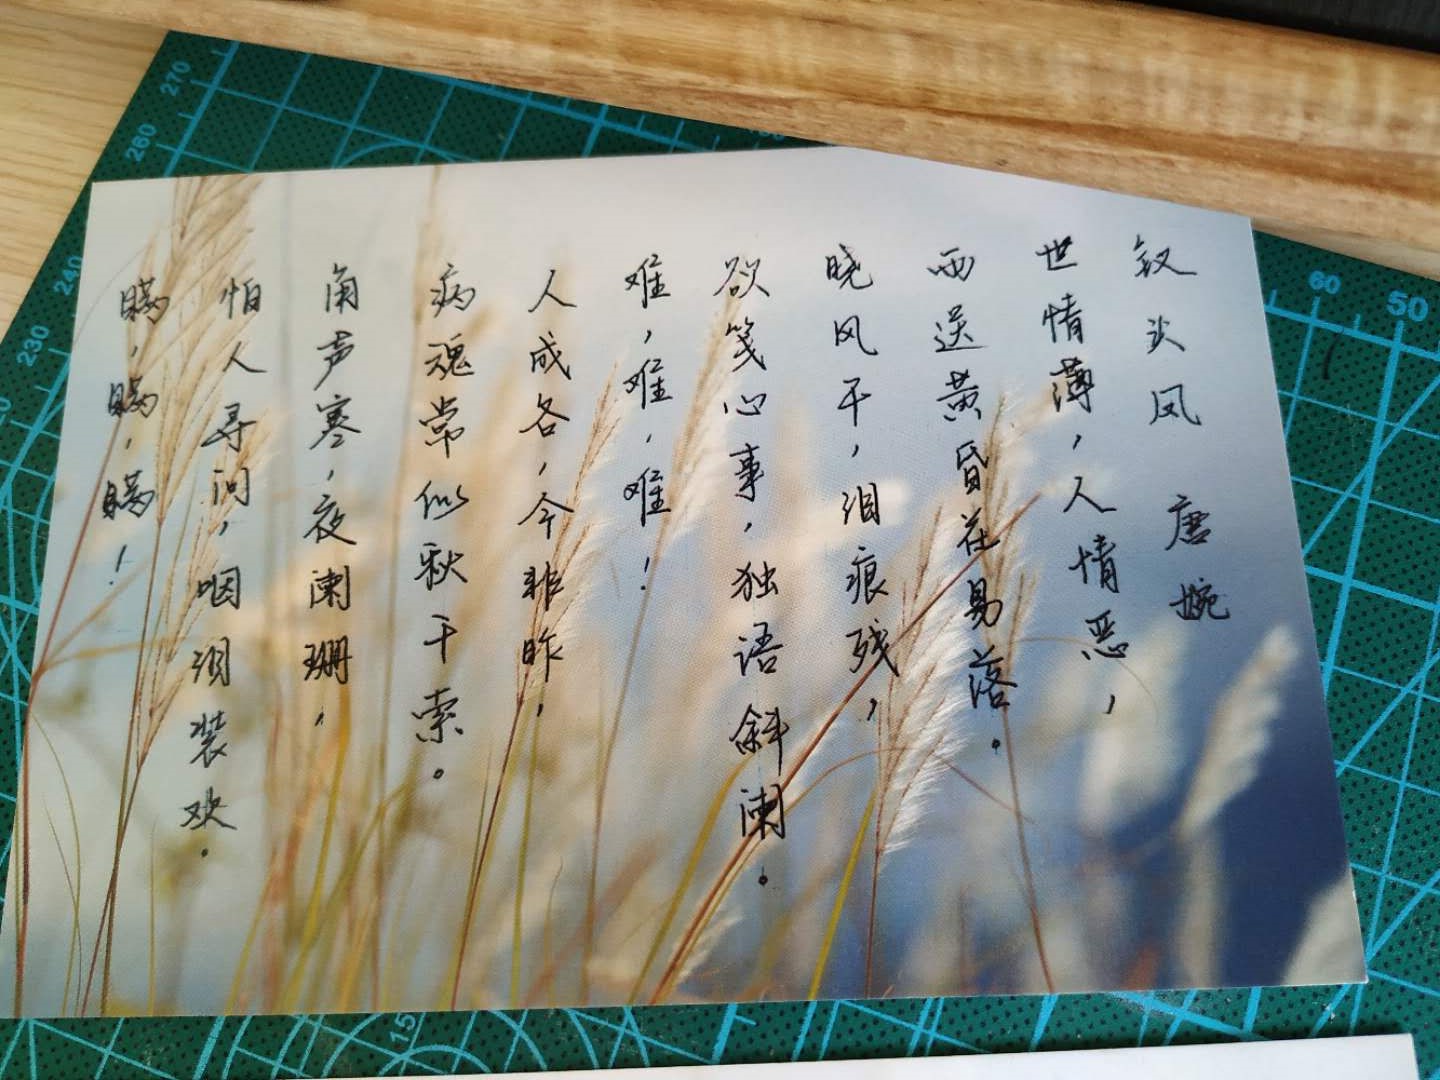 钗头凤 唐婉
世情薄，人情恶，
雨送黄昏花易落。
晓风干，泪痕残，
欲笺心事，独语斜阑。
难，难，难！
人成各，今非昨，
病魂常似秋千索。
角声寒，夜阑珊，
怕人寻问，咽泪装欢。
瞒，瞒，瞒！
270
260
240
230
60
50